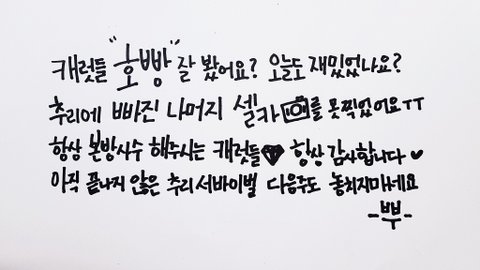 캐럿들 "호빵" 잘 봤어요? 오늘도 재밌었나요?
추리에 빠진 나머지 셀카를 못찍었어요ㅜㅜ
항상 본방사수 해주시는 캐럿들 항상 감사합니다 ♥
아직 끝나지 않은 추리서바이벌 다음주도 놓치지마세요
-뿌-